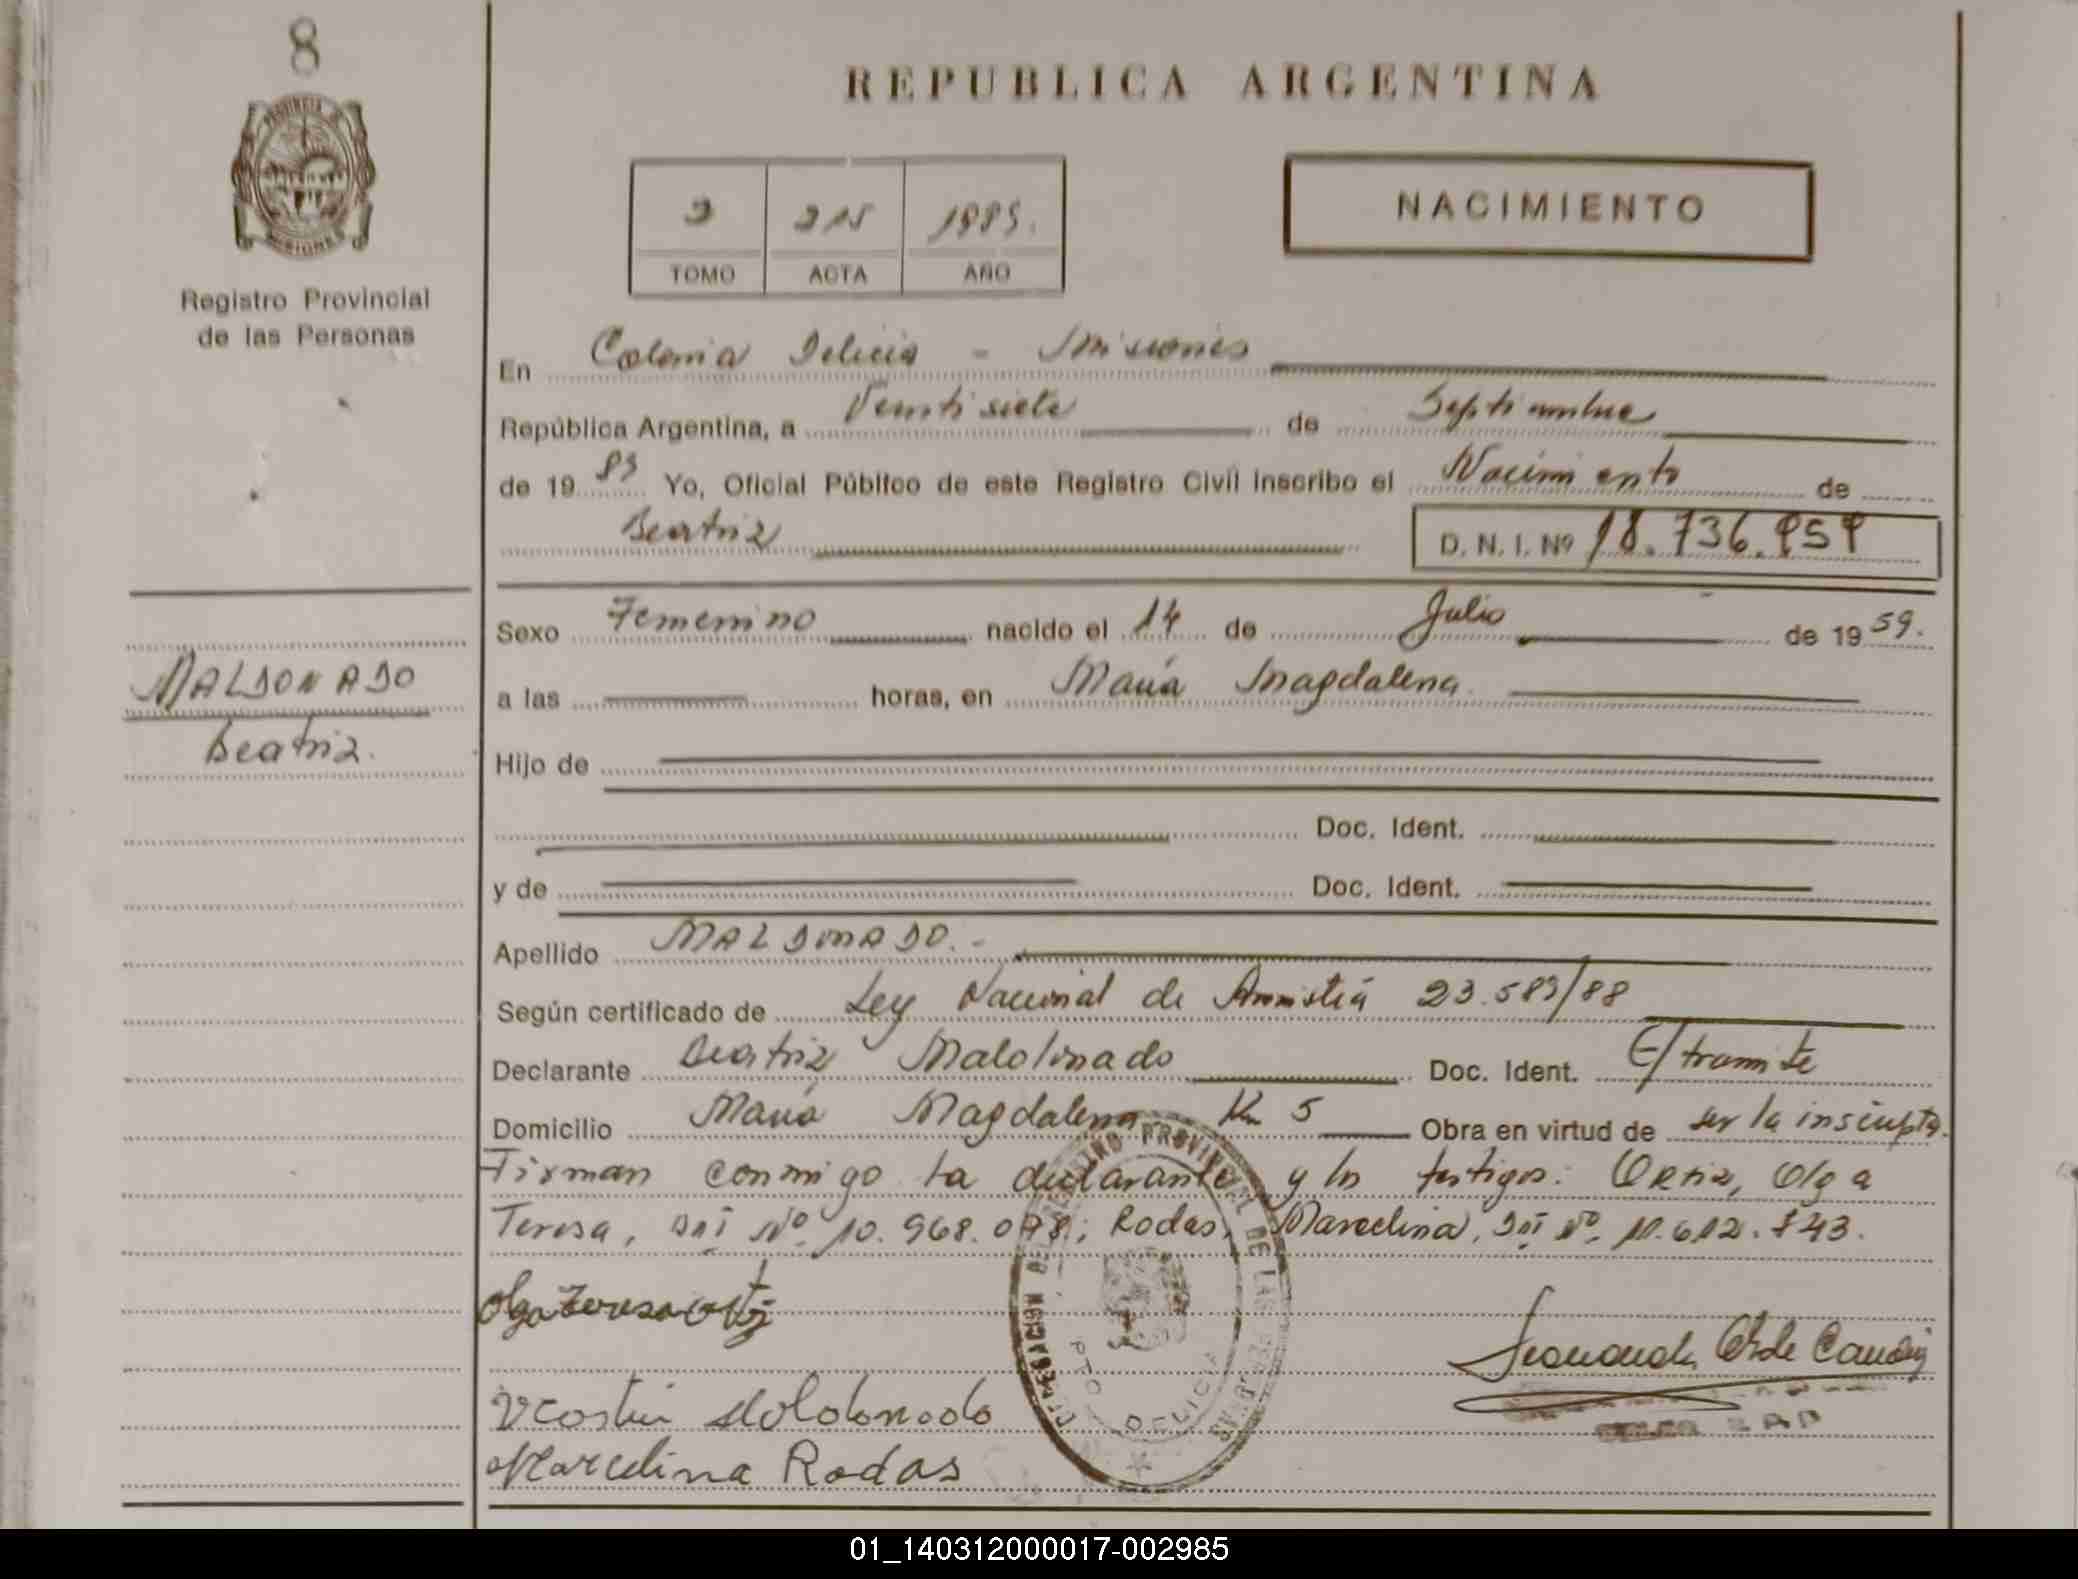 8
REPUBLICA ARGENTINA
PROVINCIA DE
MISIONES
Registro Provincial
de las Personas
2 215 1989.
TOMO ACTA AÑO
NACIMIENTO
En Colonia Delicia - Misiones
República Argentina, a Veinti siete de Septiembre
de 19 89 Yo, Oficial Público de este Registro Civil inscribo el Nacimiento de
Beatriz D. N. I. Nº 18.736.959
Sexo Femenino nacido el 14 de Julio de 19 59.
MALDONADO
Beatriz.
a las horas, en María Magdalena.
Hijo de
Doc. Ident.
y de Doc. Ident.
Apellido MALDONADO.-
Según certificado de Ley Nacional de Amnistía 23.589/88
Declarante Beatriz Maldonado Doc. Ident. E/tramite
Domicilio María Magdalena Km 5 Obra en virtud de ser la inscripta.
Firman conmigo la declarante y los testigos: Ortiz, Olga
Teresa, DNI Nº 10.968.078; Rodas, Marcelina, DNI Nº 10.612.843.
Olga Teresa Ortiz
DELEGACION DEL REGISTRO PROVINCIAL DE LAS PERSONAS
PTO DELICIA
Maldonado
Marcelina Rodas
01_140312000017-002985